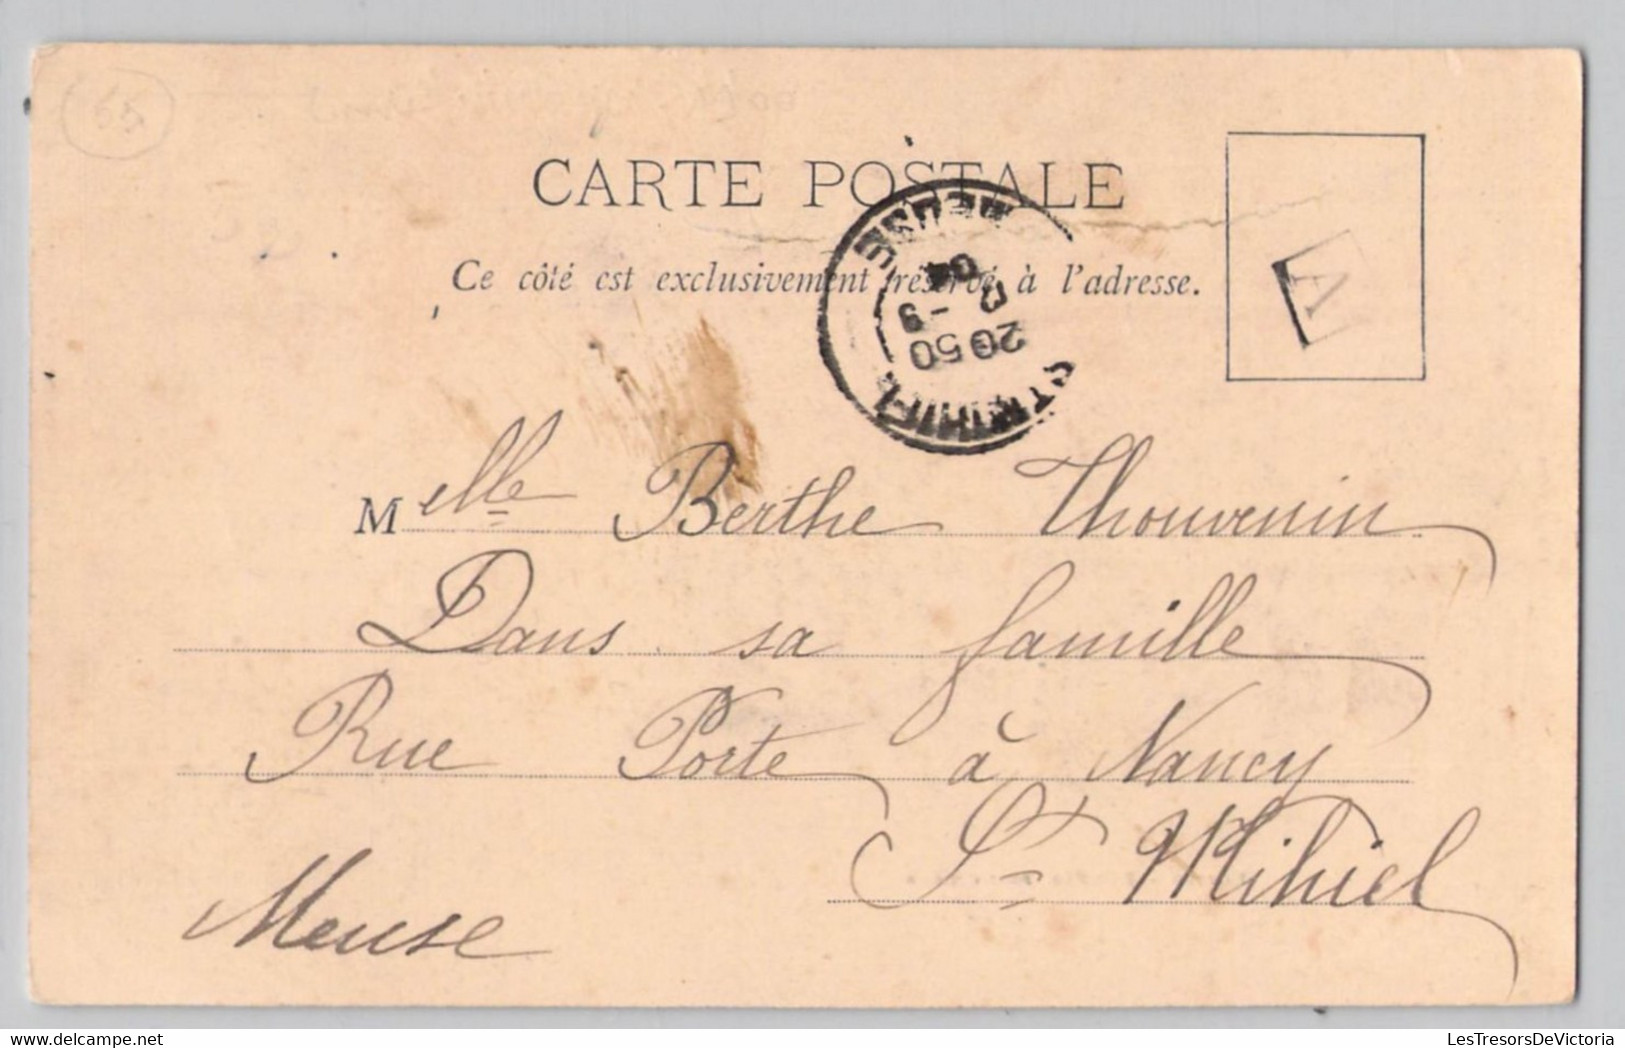 65
CARTE POSTALE
Ce côté est exclusivement réservé à l'adresse.
MEUSE
04
20 50
ST MIHIEL
Melle Berthe Thouvenin
Dans sa famille
Rue Porte à Nancy
St Mihiel
Meuse
LesTresorsDeVictoria